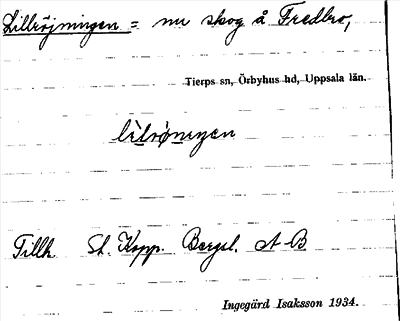 Lillröjningen = nu skog å Fredbro,
Tierps sn, Örbyhus hd, Uppsala län.
lìlrö̀ningen
Tillh. St. Kopp. Bergsl. A-B
Ingegärd Isaksson 1934.